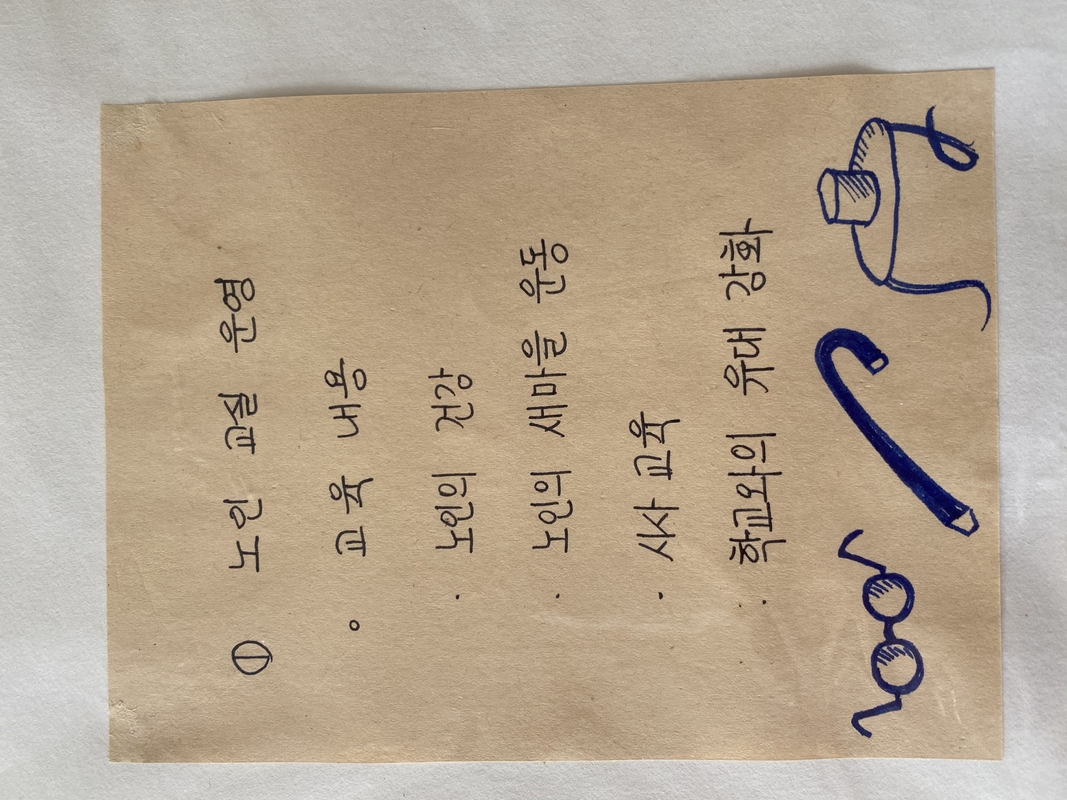 ① 노인 교실 운영
o 교육 내용
· 노인의 건강
· 노인의 새마을 운동
· 시사 교육
· 학교와의 유대 강화